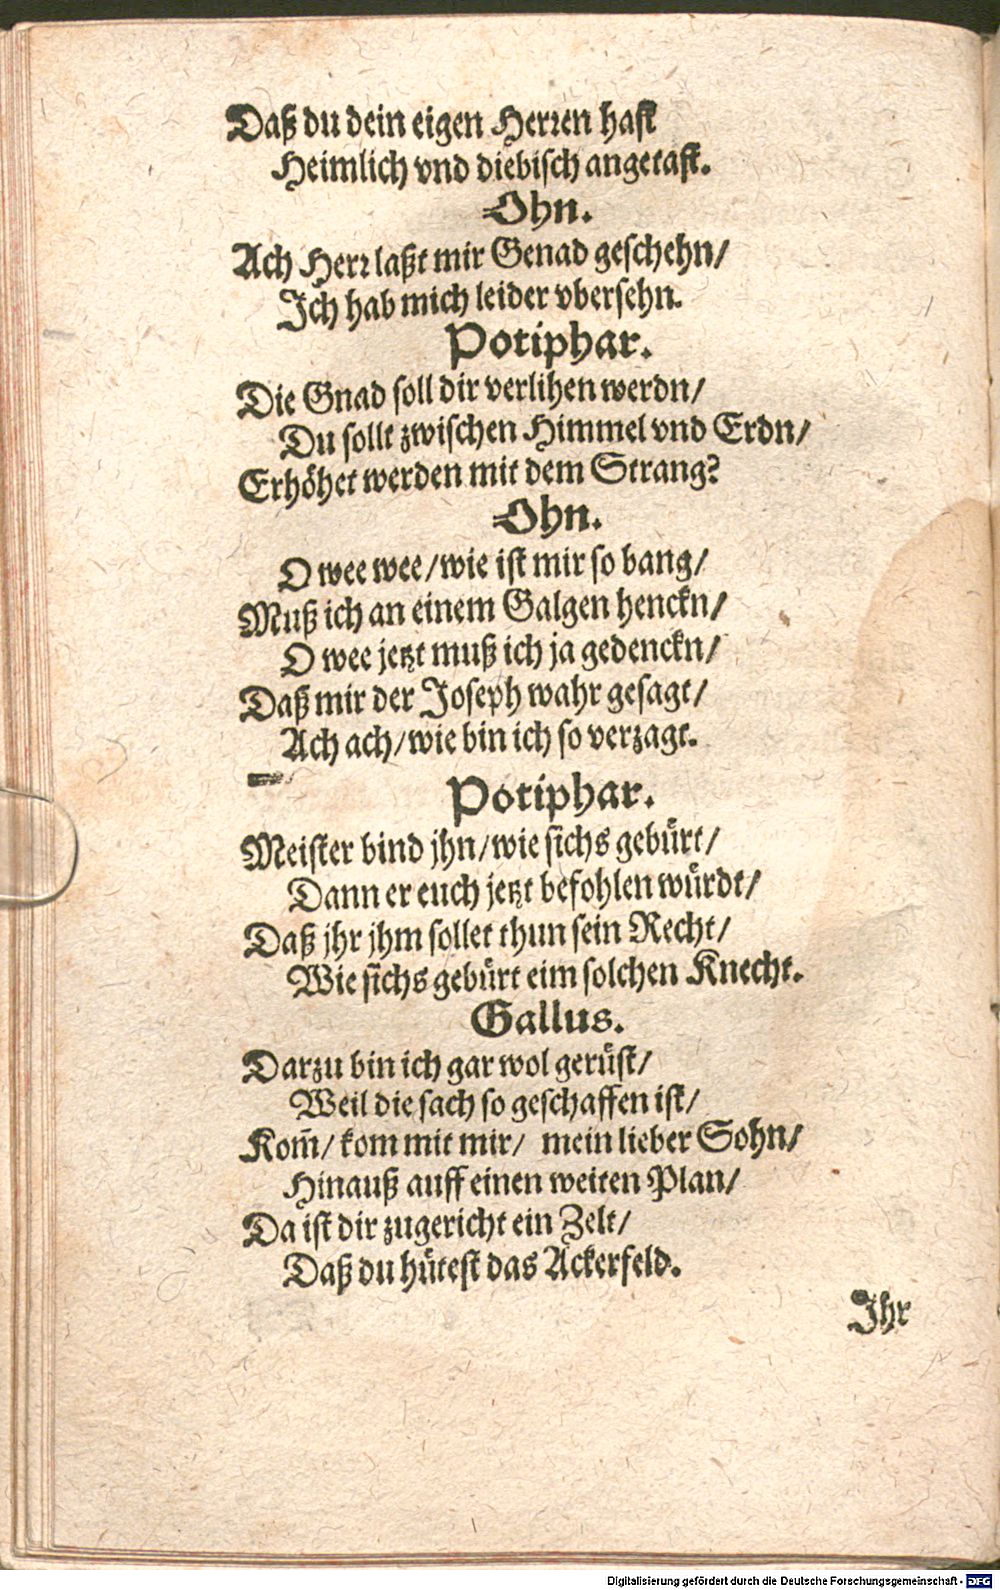 Daß du dein eigen Herren hast
Heimlich vnd diebisch angetast.
Ohn.
Ach Herr laßt mir Genad geschehn/
Ich hab mich leider vbersehn.
Potiphar.
Die Gnad soll dir verlihen werdn/
Du sollt zwischen Himmel vnd Erdn/
Erhöhet werden mit dem Strang?
Ohn.
O wee wee/wie ist mir so bang/
Muß ich an einem Galgen henckn/
O wee jetzt muß ich ja gedenckn/
Daß mir der Joseph wahr gesagt/
Ach ach/wie bin ich so verzagt.
Potiphar.
Meister bind jhn/wie sichs gebürt/
Dann er euch jetzt befohlen würdt/
Daß jhr jhm sollet thun sein Recht/
Wie sichs gebürt eim solchen Knecht.
Gallus.
Darzu bin ich gar wol gerüst/
Weil die sach so geschaffen ist/
Kom̃/ kom mit mir/ mein lieber Sohn/
Hinauß auff einen weiten Plan/
Da ist dir zugericht ein Zelt/
Daß du hütest das Ackerfeld.
Ihr
Digitalisierung gefördert durch die Deutsche Forschungsgemeinschaft - DFG